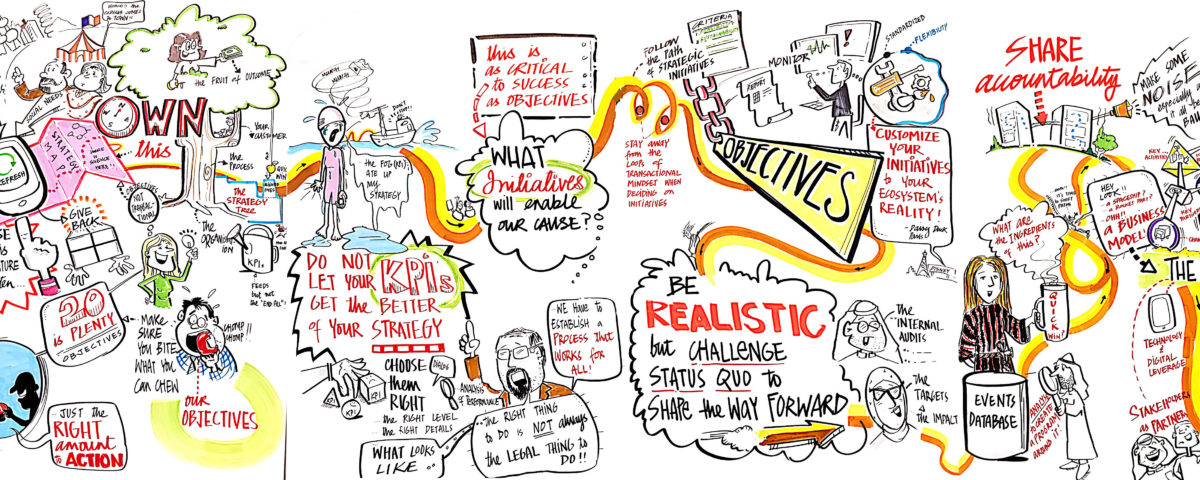 OWN
this
the FRUIT of OUTCOME
STRATEGY
MAP
REFRESH
YOUR
CUSTOMER
the
PROCESS
QUICK
WIN
The
STRATEGY
TREE
OBJECTIVES
NOT
GIVE
BACK
the
ORGANISAT-
ION
KPIs
FEEDS
but not
the "END ALL"!
20
is PLENTY
OBJECTIVES
MAKE
SURE
YOU BITE
WHAT YOU
CAN CHEW
CHOMP
CHOMP!!
our
OBJECTIVES
JUST the
RIGHT
amount
to ACTION
DON'T
the
ATE UP
MY
STRATEGY
DO NOT
LET YOUR KPIs
GET the BETTER
of YOUR STRATEGY
KPI
KPI
CHOOSE
them
RIGHT
the RIGHT LEVEL
the RIGHT DETAILS
ANALYSIS
of PERFORMANCE
WHAT LOOKS
LIKE
this is
as CRITICAL
to SUCCESS
as OBJECTIVES
WHAT
Initiatives
will enable
OUR CAUSE?
WE HAVE to
ESTABLISH a
PROCESS that
WORKS for
ALL!
the RIGHT THING
to DO is NOT always
the LEGAL THING to
DO!!
FOLLOW
the PATH
of STRATEGIC
INITIATIVES
CRITERIA
REPORT
MONITOR
STANDARDIZED
FLEXIBILITY
STAY AWAY
from the
LOOPS of
TRANSACTIONAL
MINDSET WHEN
DECIDING on
INITIATIVES
OBJECTIVES
CUSTOMIZE
YOUR
INITIATIVES
to YOUR
ECOSYSTEM'S
REALITY!
BE
REALISTIC
but CHALLENGE
STATUS QUO to
SHAPE the WAY FORWARD
the
INTERNAL
AUDITS
the
TARGETS
& the IMPACT
SHARE
accountability
MAKE SOME
NOISE
especially
KEY
ACTIVITIES
WHAT ARE
the INGREDIENTS
of this?
HEY
LOOK!!
a SPACESHIP?
OWN!!
a BUSINESS
MODEL!
THE
QUICK
WIN
EVENTS
DATABASE
TECHNOLOGY
&
DIGITAL
LEVERAGE
STAKEHOLDERS
as PARTNER